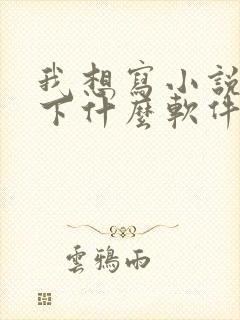 我想寫小說
下什麼軟件
雲鴉雨